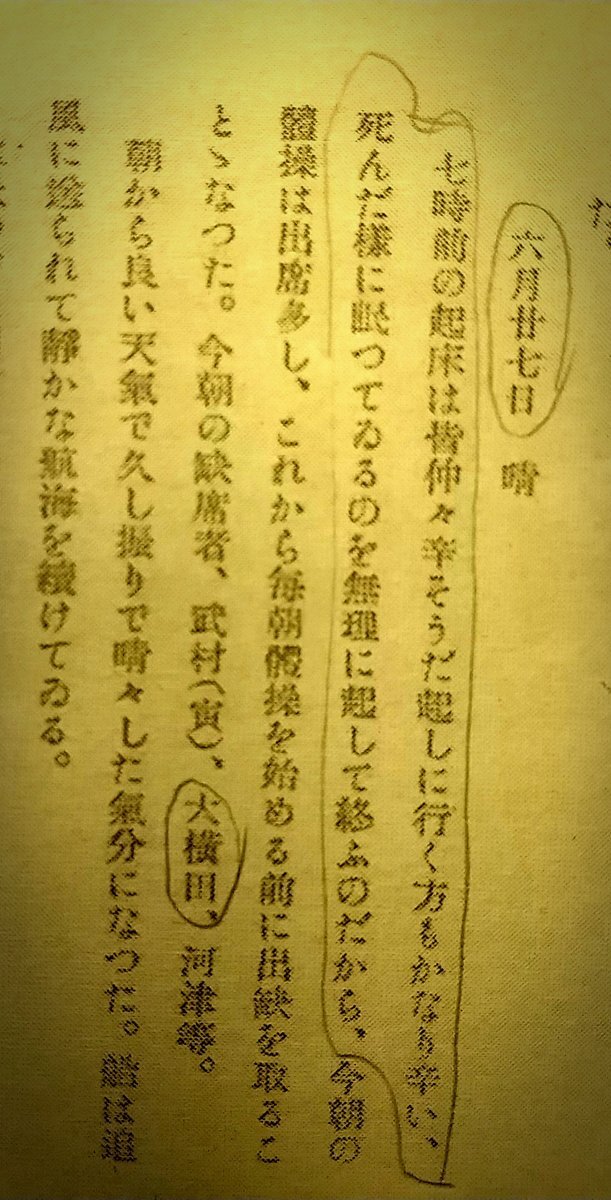 六月廿七日　晴
七時前の起床は皆仲々辛そうだ起しに行く方もかなり辛い、
死んだ様に眠つてゐるのを無理に起して終ふのだから、今朝の
體操は出席多し、これから毎朝體操を始める前に出缺を取るこ
とゝなつた。今朝の缺席者、武村(寅)、大横田、河津等。
朝から良い天氣で久し振りで晴々した氣分になつた。船は追
風に送られて靜かな航海を續けてゐる。